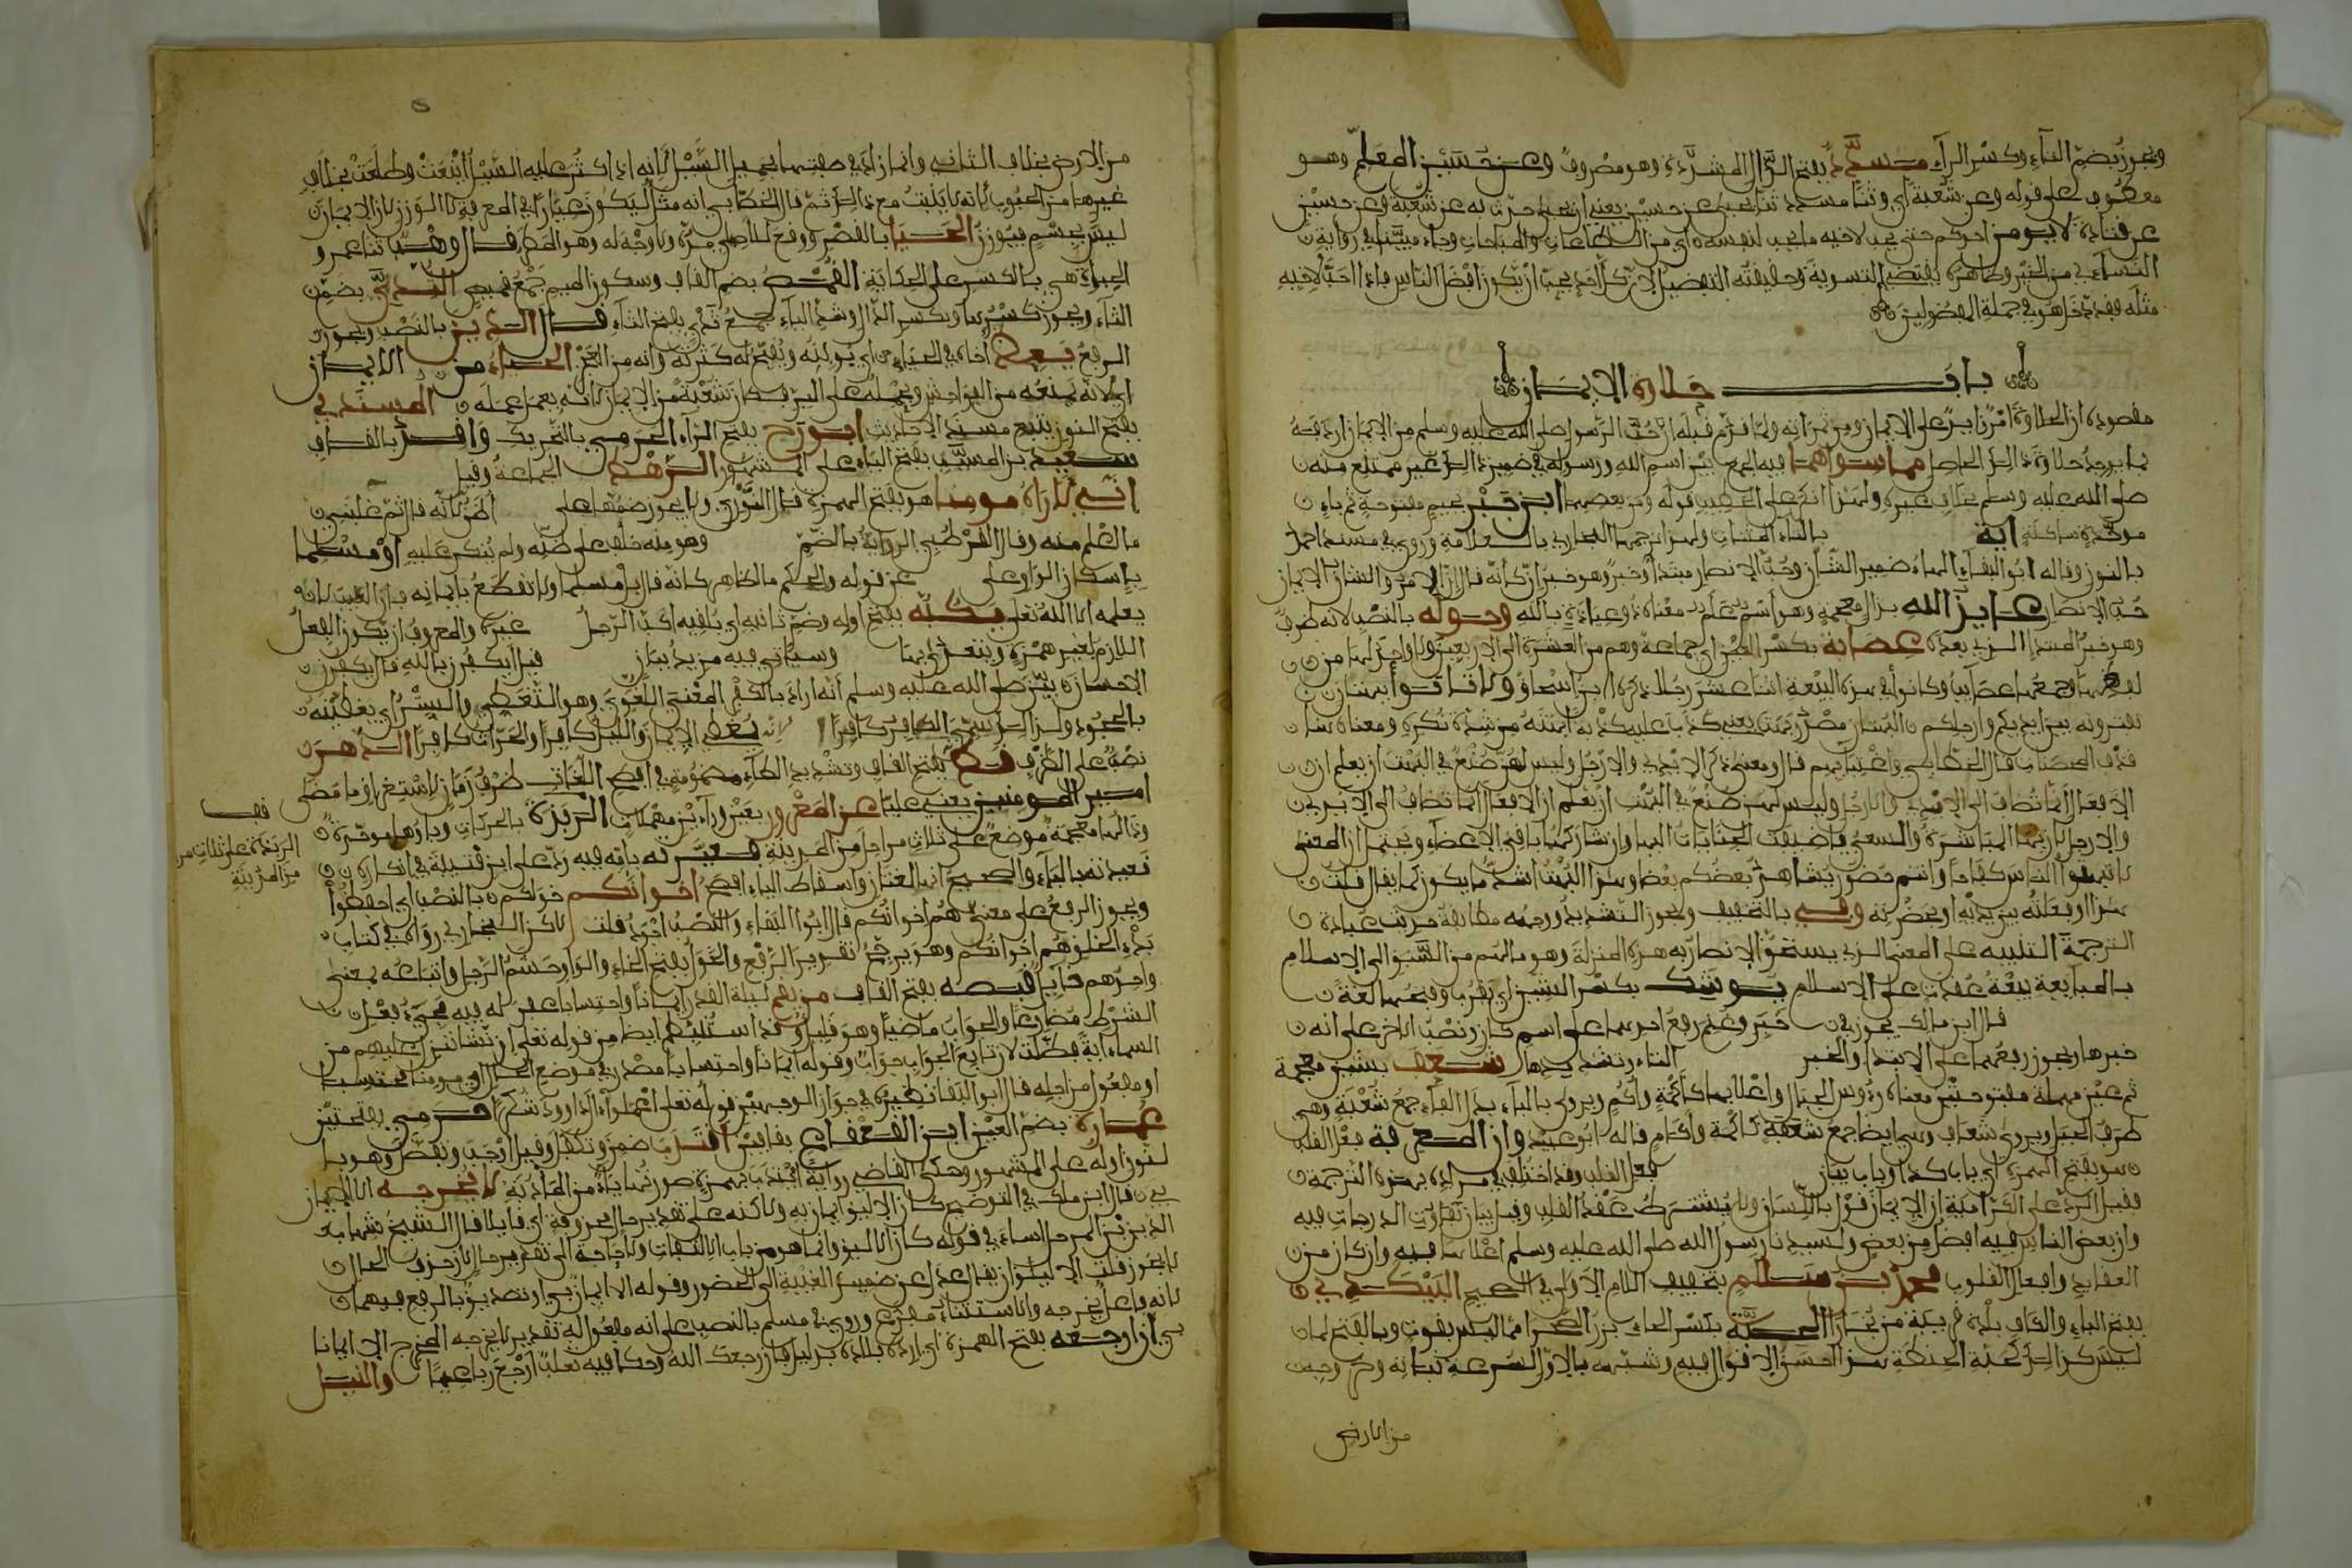 ويجوز بضم التاء وكسر الراء مسدد بفتح الدال المشددة وهو مصروف وعن حسين المعلم وهو
معطوف على قوله وعن شعبة أي وثنا مسدد ثنا يحيى عن حسين يعني أن يحيى حدث به عن شعبة وعن حسين
عن قتادة لا يومن أحدكم حتى يحب لأخيه ما يحب لنفسه أي من الطاعات والمباحات وجاء مبينا في رواية
النساءي من الخير وظاهره يقتضي التسوية وحقيقته التفضيل لأن كل أحد يحب أن يكون أفضل الناس فإذا أحب لأخيه
مثله فقد دخل هو في جملة المفضولين
باب حلاوة الإيمان
مقصوده أن الحلاوة أمر زايد على الإيمان ومن ثمراته ولما قدم قبله أن حب الرسول صلى الله عليه وسلم من الإيمان أردفه
بما يوجد حلاوة ذلك الحاصل مما سواهما فيه الجمع بين اسم الله ورسوله في ضمير وذلك غير ممتنع منه
صلى الله عليه وسلم بخلاف غيره ولهذا أنكر على الخطيب قوله ومن يعصهما ابن جبر بجيم مفتوحة ثم باء
موحدة ساكنة آية بالتاء المثناة ولهذا ترجمها البخاري بالعلامة وروي في مسند أحمد
بالنون وقاله أبو البقاء الهاء ضمير الشأن وحب الأنصار مبتدأ وخبر وهو خبر إن كأنه قال إن الأمر والشان الإيمان
حب الأنصار عايذ الله بذال معجمة وهو اسم علم معناه ذو عياذة بالله وحوله بالنصب لأنه ظرف
وهو خبر المبتدإ الذي بعده عصابة بكسر العين أي جماعة وهم من العشرة إلى الأربعين ولا واحد لها من
لفظها وجمعها عصايب وكانوا في هذه البيعة اثنا عشر رجلا ذكره ابن إسحاق ولا تاتوا ببهتان
تفترونه بين أيديكم وأرجلكم البهتان مصدر بهت يعني كذب عليه كذبة أبهتته من شدة نكره ومعناه هنا
قذف المحصنات قال الخطابي واغتيابهم قال ومعنى ذكر الأيدي والأرجل وليس لهن صنع في البهت أن يعلم أن
الأفعال إنما تضاف إلى الأيدي والأرجل وليس لهن صنع في البهت أن يعلم أن الأفعال إنما تضاف إلى الأيدي
والأرجل لأن بهما المباشرة والسعي فأضيفت الجنايات إليها وإن شاركها باقي الأعضاء ويحتمل أن المعنى
لا تبهتوا الناس كفاحا وأنتم حضور يشاهد بعضكم بعضا وهذا البهت أشد ما يكون كما يقال قلت
هذا وفعلته بين يديه أي بحضرته وفى بالتخفيف ويجوز التشديد ووجه مطابقة حديث عبادة
الترجمة التنبيه على المعنى الذي يستحق الأنصار به هذه المنزلة وهو ما لهم من السبق إلى الإسلام
بالمبايعة بيعة عقدت على الإسلام يوشك بكسر الشين أي يقرب وفتحها لغة
قال ابن مالك يجوز في خير وغنم رفع أحدهما على اسم كان ونصب الآخر على أنه
خبرها ويجوز رفعهما على الابتداء والخبر التاء وتشديدها شعف بشين معجمة
ثم عين مهملة مفتوحتين معناه رءوس الجبال وأعلاها كأكمة وأكم ويروى بالباء بدل الفاء جمع شعبة وهي
طرف الجبل ويروى شعاف وهي أيضا جمع شعفة كأكمة وآكام قاله أبو عبيد وأن المعرفة فعل القلب
هو بفتح الهمزة أي باب كذا وباب بيان فعل القلب وقد اختلف في مراده بهذه الترجمة
فقيل الرد على الكرامية أن الإيمان قول باللسان ولا يشترط عقد القلب وفيه بيان تفاوت الدرجات فيه
وأن بعض الناس فيه أفضل من بعض ولسيدنا رسول الله صلى الله عليه وسلم أعلاها فيه وإن كان من
العقايد وأفعال القلوب محمد بن سلام بتخفيف اللام الأولى في الصحيح البيكندي
بفتح الباء والكاف بلدة قريبة من بخارا الحبة بكسر الحاء بزر الصحراء مما ليس بقوت وبالفتح لما
ليس كذلك كحبة الحنطة هذا أحسن الأقوال فيه وشبهه بالأول لسرعة نباته وحيث
من الأرض
من الأرض بخلاف الثاني وإنما زاد في صفتها بحميل السيل لأنه إذا كثر عليه السيل انبعثت وطلعت بخلاف
غيرها من الحبوب فإنه لا يلبث مع ذلك ثم قال الخطابي إنه مثل ليكون عيارا في المعرفة لا الوزن لأن الإيمان
ليس بجسم فيوزن الحيا بالقصر ووقع للأصيلي مده ولا وجه له وهو المطر قال وهيب ثنا عمرو
الحياة هي بالكسر على الحكاية القمص بضم القاف وسكون الميم جمع قميص الثدي بضم
الثاء ويجوز كسرها وبكسر الدال وشد الياء جمع ثدي بفتح الثاء قال الدين بالنصب ويجوز
الرفع يعظ أخاه في الحياء أي يونبه ويقبح له كثرته وأنه من العجز الحياء من الإيمان
أي لأنه يمنعه من الفواحش ويحمله على البر فصار شعبة من الإيمان لأنه يعمل عمله المسندي
بفتح النون يتتبع مسند الأحاديث أبو روح بفتح الراء الحرمي بالتحريك واقد بالقاف
سعيد بن المسيب بفتح الياء على المشهور الرهط الجماعة وقيل
إني لأراه مومنا هو بفتح الهمزة قال النووي ولا يجوز ضمها على أظن لأنه قال ثم غلبني
ما أعلم منه وقال القرطبي الرواية بالضم وهو منه حلف على ظنه ولم ينكر عليه أو مسلما
بإسكان الواو على عن قوله والحكم بالظاهر كأنه قال بل مسلما ولا تقطع بإيمانه فإن الغيب لا
يعلمه إلا الله تعالى يكبه بفتح أوله وضم ثانيه أي يلقيه أكب الرجل غيره والمعروف أن يكون الفعل
اللازم بغير همزة ويتعدى بها وسياتي فيه مزيد بيان قيل أيكفرن بالله قال يكفرن
الإحسان بين صلى الله عليه وسلم أنه أراد بالكفر المعنى اللغوي وهو التغطي والستر أي يغطينه
بالجحود ولذلك سمي الكافر كافرا لأنه يغطي الإيمان والليل كافرا والحراث كافرا الدهر
نصب على الظرف قط بفتح القاف وتشديد الطاء مضمومة في أفصح اللغات ظرف زمان لاستغراق ما مضى
أمير المومنين يعني عليا عن المعرور بعين وراءين مهملات الربذة بالحركات وباؤها موحدة
وذالها معجمة موضع على ثلاث مراحل من المدينة فعيرته بأمه فيه رد على ابن قتيبة في إنكاره
تعديته بالباء والصحيح أنهما لغتان وإسقاط الباء أفصح إخوانكم خولكم بالنصب أي احفظوا
ويجوز الرفع على معنى هم إخوانكم قال أبو البقاء والنصب أجود قلت لكن البخاري رواه في كتاب
بدء الخلق هم إخوانكم وهو يرجح تقدير الرفع والخول بفتح الخاء والواو حشم الرجل وأتباعه بمعنى
واحدهم خايل قبيصة بفتح القاف من يقم ليلة القدر إيمانا واحتسابا غفر له فيه مجيء فعل
الشرط مضارعا والجواب ماضيا وهو قليل وقد استنبط أيضا من قوله تعالى إن نشأ ننزل عليهم من
السماء آية فظلت لأن تابع الجواب جواب وقوله إيمانا واحتسابا مصدر في موضع الحال أي مومنا محتسبا
أو مفعول من أجله قال أبو البقاء نظيره في جواز الوجهين قوله تعالى اعملوا آل داوود شكرا حرمي بفتحتين
عمارة بضم العين ابن القعقاع بقافين انتدب ضمن وتكفل وقيل أوجب وتفضل وهو با
لنون أوله على المشهور وحكى القاضي رواية ايتدب بهمزة صورتها ياء من المأدبة لا يخرجه إلا الإيمان
بي قال ابن مالك في التوضيح كان الأليق إيمان به ولاكنه على تقدير حال محذوفة أي قايلا قال الشيخ شهاب
الدين بن المرحل أساء في قوله كان الأليق وإنما هو من باب الالتفات ولا حاجة إلى تقدير حال لأن حذف الحال
لا يجوز قلت الأليق أن يقال عدل عن ضمير الغيبة إلى الحضور وقوله إلا إيمان بي أو تصديق بالرفع فيهما
لأنه فاعل يخرجه والاستثناء مفرغ وروي في مسلم بالنصب على أنه مفعول له تقديره لا يخرجه المخرج إلا إيمانا
بي أن أرجعه بفتح الهمزة أي أرده بلاده بدليل فإن رجعك الله وحكا فيه ثعلب أرجع رباعيا والنيل
الربذة على ثلاث مراحل
من المدينة